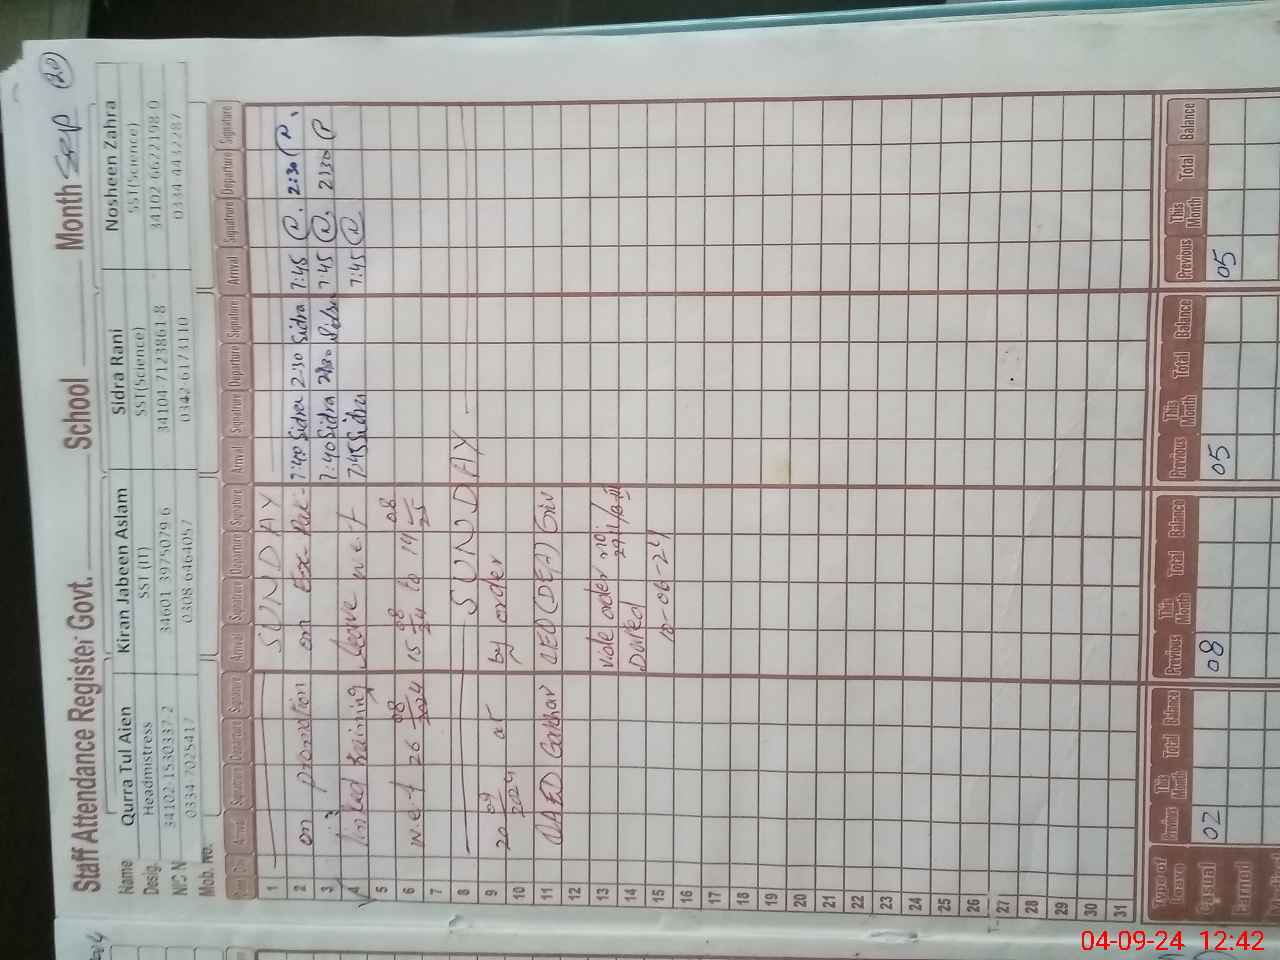 Staff Attendance Register Govt. School Month Sep (20)
Name Qurra Tul Aien Kiran Jabeen Aslam Sidra Rani Nosheen Zahra
Desig. Headmistress SST (IT) SST(Science) SST(Science)
NIC N 34102-1530337-2 34601 3975079 6 34104 7123861 8 34102 6622198 0
Mob. No. 0334-7025417 0308 6464057 0342 6173110 0334 4432287
Arrival Signature Departure Signature Arrival Signature Departure Signature Arrival Signature Departure Signature Arrival Signature Departure Signature
1 SUNDAY
2 on promotion on Ex-Pak- 7:40 Sidra 2-30 Sidra 7:45 2:30
3 7:40 Sidra 2:30 7:45 2:30
4 linked training leave w.e.f 7:45 Sidra 7:45
5
6 w.e.f 26 08/2024 15 08/24 to 14 08/25
7
8 SUNDAY
9 20 09/2024 by order
10
11 Gakhar CEO (DEA)
12
13 vide order no
14 Dated
15 10-06-24
16
17
18
19
20
21
22
23
24
25
26
27
28
29
30
31
Type of Leave Previous This Month Total Balance Previous This Month Total Balance Previous This Month Total Balance Previous This Month Total Balance
Casual 02 08 05 05
Earned
04-09-24 12:42